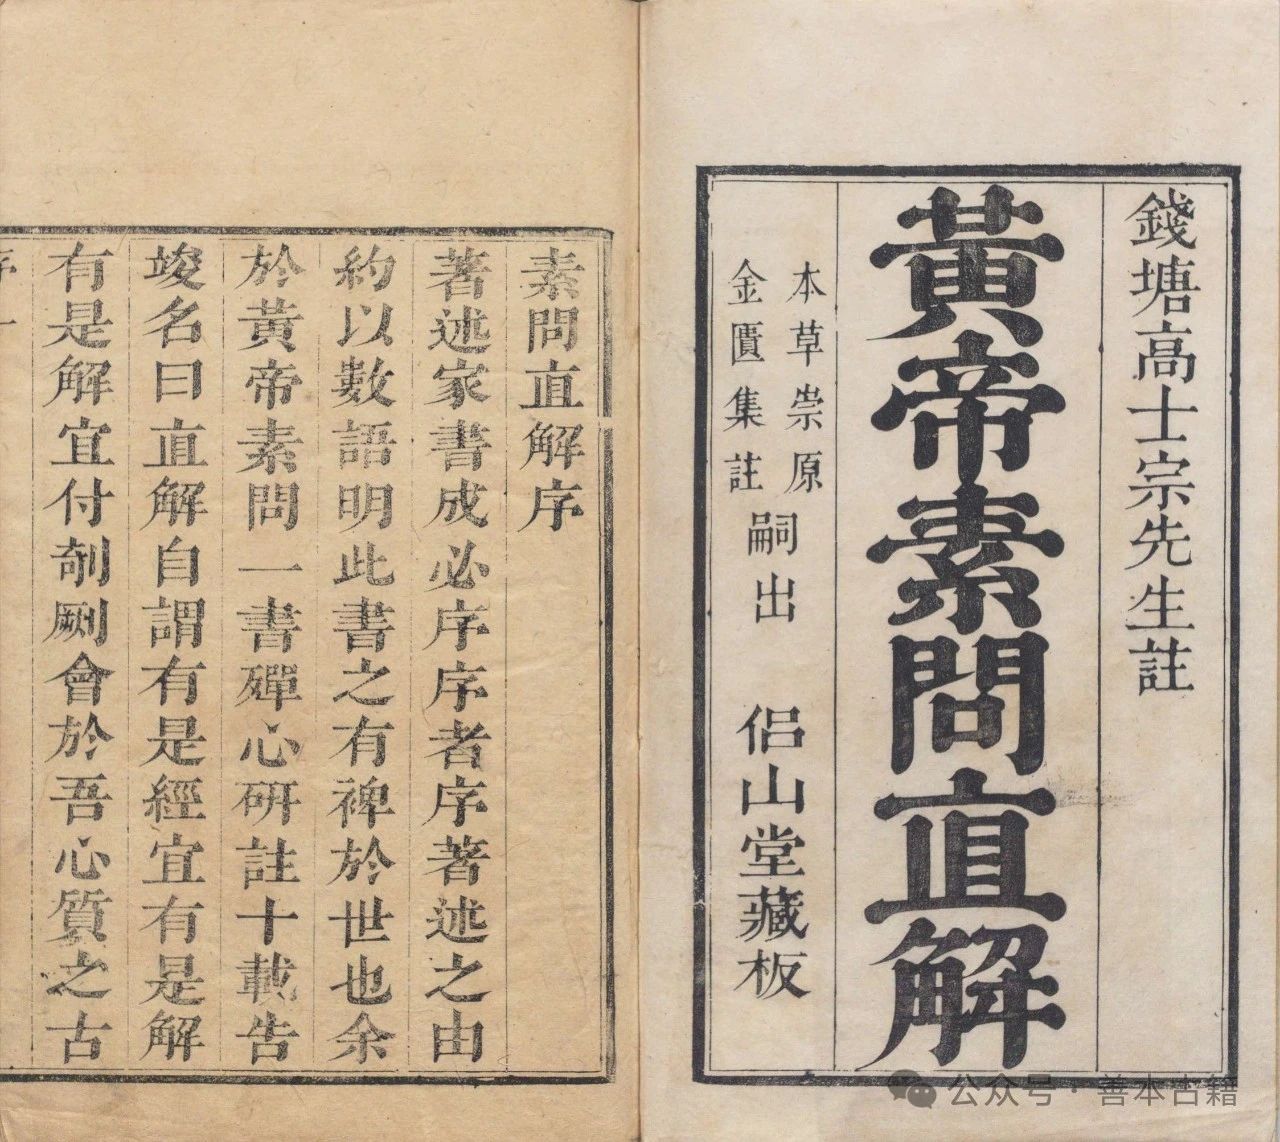 錢塘高士宗先生註
黃帝素問直解
本草崇原
金匱集註
嗣出
侶山堂藏板
素問直解序
著述家書成必序序者序著述之由
約以數語明此書之有裨於世也余
於黃帝素問一書殫心硏註十載告
竣名曰直解自謂有是經宜有是解
有是解宜付剞劂會於吾心質之古
公众号·善本古籍